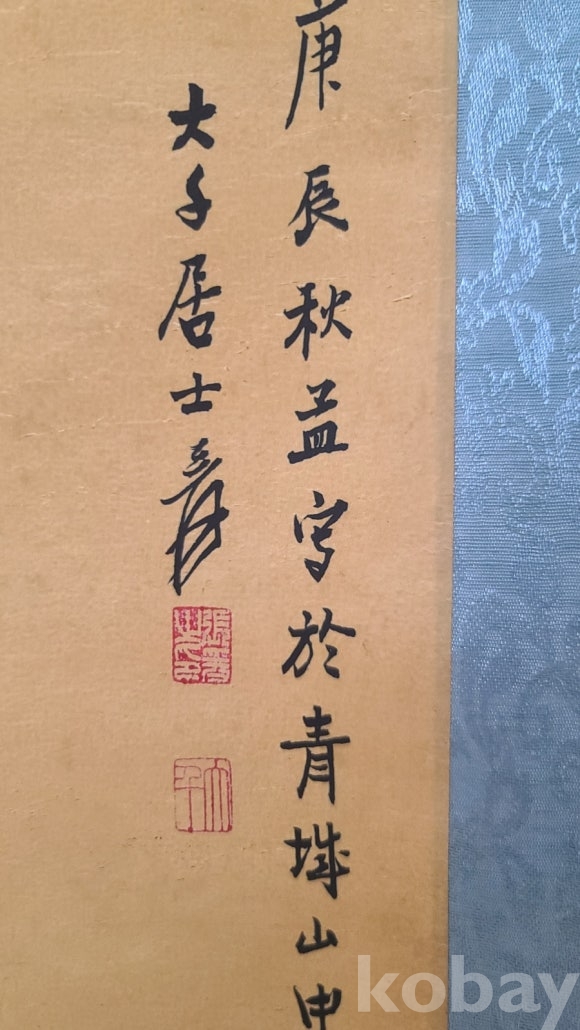 庚辰秋孟写於青城山中
大千居士爰
張爰之印
大千
kobay